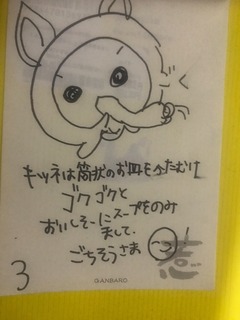 ごく
キツネは筒状のお皿をかたむけ
ゴクゴクと
おいしそーにスープをのみ
まして、
ごちそうさま
3
GANBARD